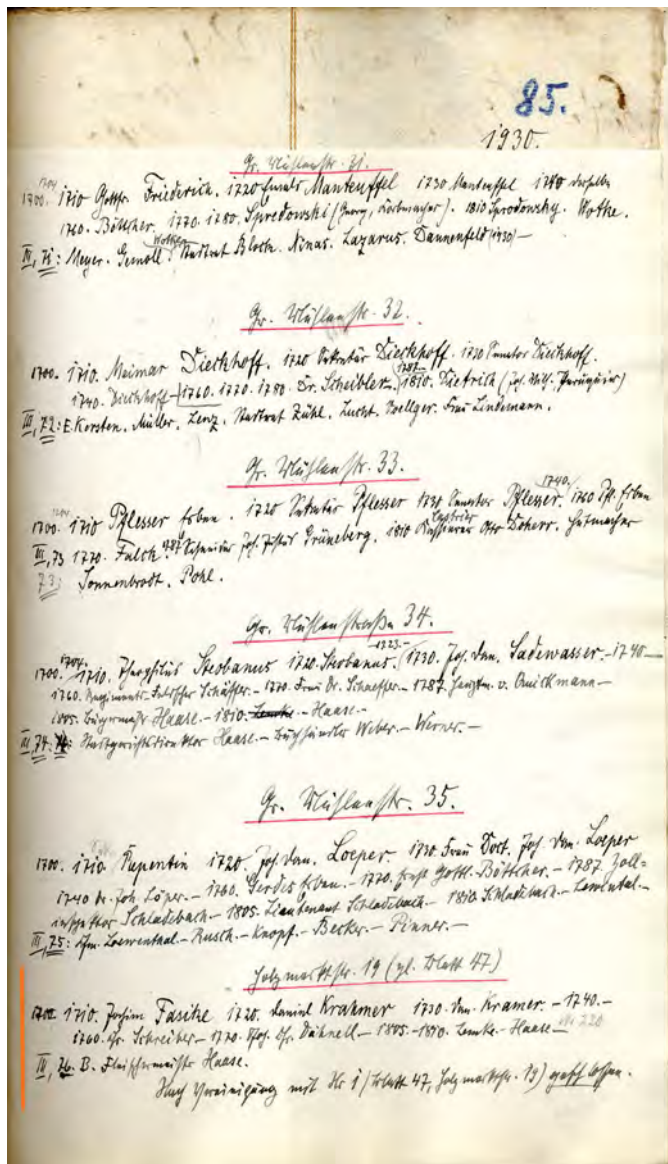 85.
1930.
Gr. Mühlenstr. 31.
1704
1700. 1710 Gottfr. Friederich. 1720 Manteuffel 1730 Manteuffel 1740 derselbe
1760. Böttcher. 1770. 1780. Spredowski (Georg, Korbmacher). 1810 Sprodowsky. Wothe.
III, 71: Meyer. Gemoll. Stadtrat Block. Ninas. Lazarus. Dannenfeld (1930) —
Gr. Mühlenstr. 32.
1700. 1710. Meimar Dieckhoff. 1720 Sekretär Dieckhoff. 1730 Senator Dieckhoff.
1740. Dieckhoff — 1760. 1770. 1780. Dr. Scheibler. 1787. 1810. Dietrich (Joh. Wilh. Peruquier)
III, 72: E. Kersten. Müller. Lenz. Stadtrat Rühl. Lucht. Vellger. Frau Lindemann.
Gr. Mühlenstr. 33.
1700. 1704 1710 Pflesser Erben. 1720 Sekretär Pflesser 1730 Senator Pflesser. 1740. 1760 Pfl. Erben
III, 73 1770. Falck 1787 Schneider Joh. Grüneberg. 1810 Kassierer Otto Doherr. Hutmacher
73: Sonnenbrodt. Pohl.
Gr. Mühlenstraße 34.
1700. 1704. 1710. Theophilus Sterbanus 1720. Sterbanus. 1723.- 1730. Joh. Dan. Sadewasser. - 1740 —
1760. Regiments-Feldscher Schäffer. - 1770. Frau Dr. Schaeffer. - 1787. Hauptm. v. Quickmann —
1805. Bürgermstr Haase. - 1810. Lemke. - Haase. -
III, 74: Stadtgerichtsdirektor Haase. - Buchhändler Weber. - Werner. -
Gr. Mühlenstr. 35.
1700. 1710 Papentin 1720. Joh. Dan. Loeper. 1730. Frau Doct. Joh. Dan. Loeper
1740 Dr. Joh. Löper. - 1760. Gerdes Erben. - 1770. Ernst Gottl. Böttcher. - 1787. Zoll=
inspektor Schladebach - 1805. Lieutenant Schladebach. - 1810. Schladebach. - Lewental. -
III, 75: Loewenthal. - Rusch. - Knopf. - Becker. - Pinner. -
Holzmarktstr. 19 (vgl. Blatt 47)
1702 1710. Jochim Fasitze 1720. Daniel Krahmer 1730. Dan. Kramer. - 1740. -
1760. Chr. Schreiber. - 1770. Chr. Dühnell. - 1805. - 1810. Lemke. - Haase. - 220
III, 76. B. Fleischermeister Haase.
Nach Vereinigung mit Nr 1 (Blatt 47, Holzmarktstr. 19) geschlossen.